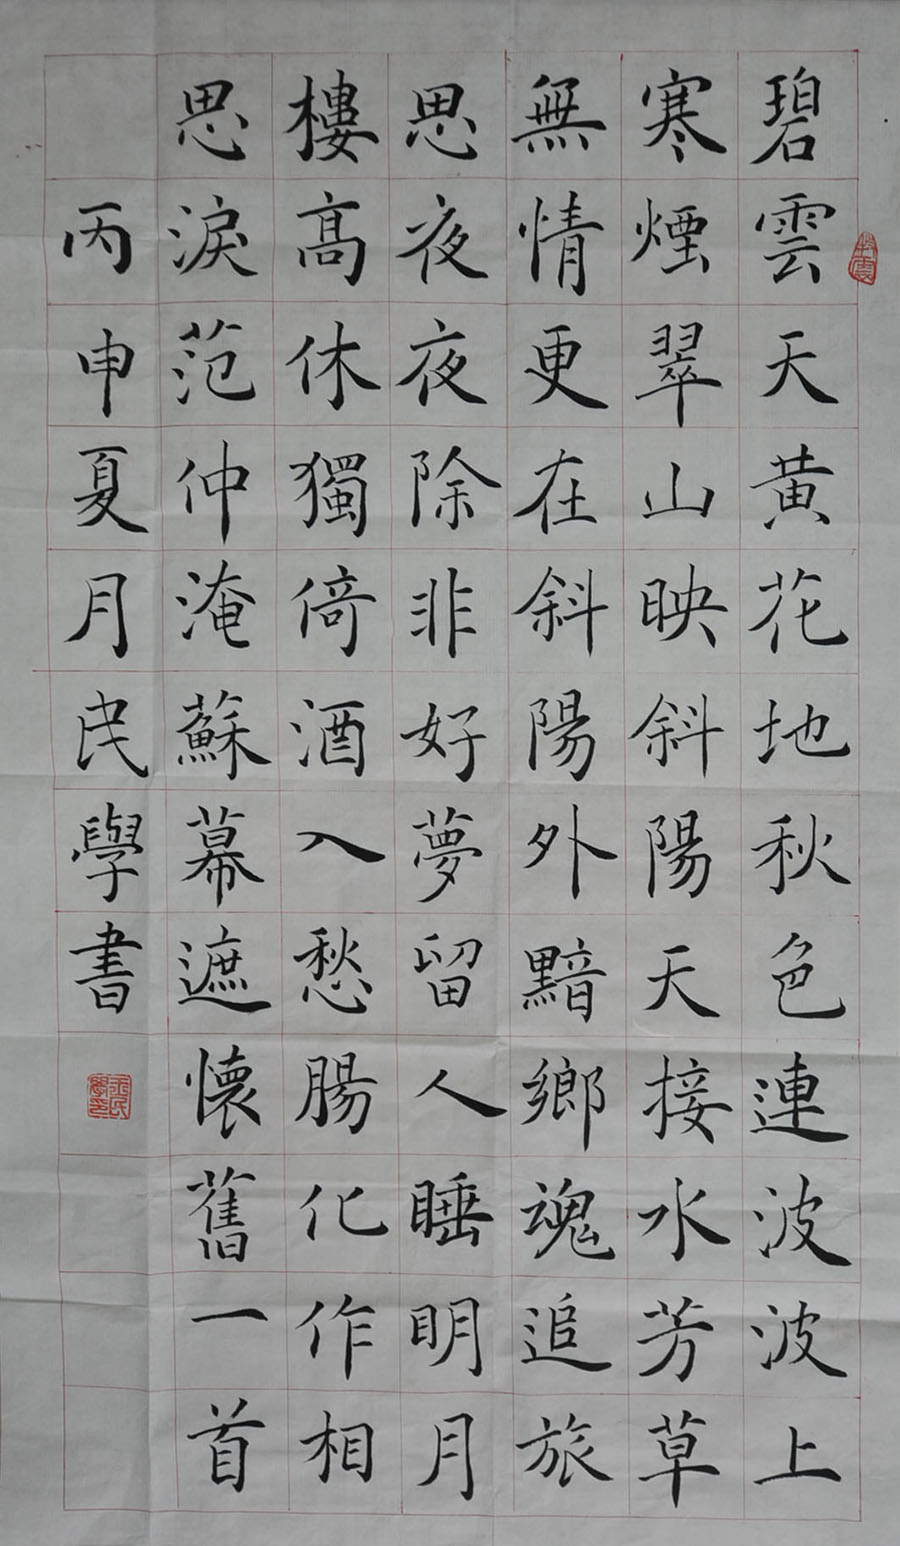 碧雲天黄花地秋色連波波上
寒煙翠山映斜陽天接水芳草
無情更在斜陽外黯鄉魂追旅
思夜夜除非好夢留人睡明月
樓高休獨倚酒入愁腸化作相
思淚范仲淹蘇幕遮懷舊一首
丙申夏月民學書